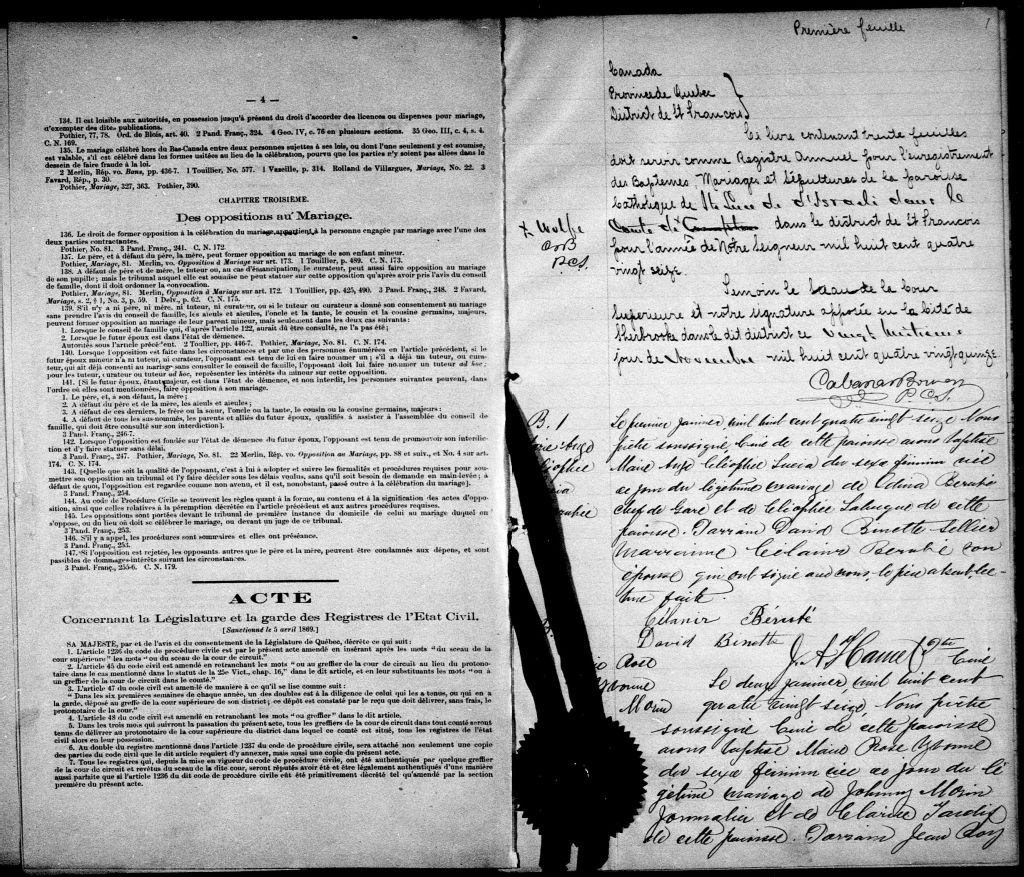 — 4 —
134. Il est loisible aux autorités, en possession jusqu'à présent du droit d'accorder des licences ou dispenses pour mariage,
d'exempter des dites publications.
Pothier, 77, 78. Ord. de Blois, art. 40. 2 Pand. Franç., 324. 4 Geo. IV, c. 76 en plusieurs sections. 35 Geo. III, c. 4, s. 4.
C. N. 169.
135. Le mariage célébré hors du Bas-Canada entre deux personnes sujettes à ses lois, ou dont l'une seulement y est soumise,
est valable, s'il est célébré dans les formes usitées au lieu de la célébration, pourvu que les parties n'y soient pas allées dans le
dessein de faire fraude à la loi.
2 Merlin, Rép. vo. Bans, pp. 436-7. 1 Touillier, No. 577. 1 Vazeille, p. 314. Rolland de Villargues, Mariage, No. 22. 3
Favard, Rép., p. 30.
Pothier, Mariage, 327, 363. Pothier, 390.
CHAPITRE TROISIEME.
Des oppositions au Mariage.
136. Le droit de former opposition à la célébration du mariage appartient à la personne engagée par mariage avec l'une des
deux parties contractantes.
Pothier, No. 81. 3 Pand. Franç., 241. C. N. 172.
137. Le père, et à défaut du père, la mère, peut former opposition au mariage de son enfant mineur.
Pothier, Mariage, 81. Merlin, vo. Opposition à Mariage sur art. 173. 1 Touillier, p. 489. C. N. 173.
138. A défaut de père et de mère, le tuteur ou, au cas d'émancipation, le curateur, peut aussi faire opposition au mariage
de son pupille; mais le tribunal auquel elle est soumise ne peut statuer sur cette opposition qu'après avoir pris l'avis du conseil
de famille, dont il doit ordonner la convocation.
Pothier, Mariage, 81. Merlin, Opposition à Mariage sur art. 172. 1 Touillier, pp. 425, 490. 3 Pand. Franç., 248. 2 Favard,
Mariage, s. 2, § 1, No. 3, p. 59. 1 Delv., p. 62. C. N. 175.
139. S'il n'y a ni père, ni mère, ni tuteur, ni curateur, ou si le tuteur ou curateur a donné son consentement au mariage
sans prendre l'avis du conseil de famille, les aieuls et aieules, l'oncle et la tante, le cousin et la cousine germains, majeurs,
peuvent former opposition au mariage de leur parent mineur, mais seulement dans les deux cas suivants:
1. Lorsque le conseil de famille qui, d'après l'article 122, aurait dû être consulté, ne l'a pas été;
2. Lorsque le futur époux est dans l'état de démence.
Autorités sous l'article précédent. 2 Touillier, pp. 446-7. Pothier, Mariage, No. 81. C. N. 174.
140. Lorsque l'opposition est faite dans les circonstances et par une des personnes énumérées en l'article précédent, si le
futur époux mineur n'a ni tuteur, ni curateur, l'opposant est tenu de lui en faire nommer un; s'il a déjà un tuteur, ou cura-
teur, qui ait déjà consenti au mariage sans consulter le conseil de famille, l'opposant doit lui faire nommer un tuteur ad hoc;
pour les tuteur, curateur ou tuteur ad hoc, représenter les intérêts du mineur sur cette opposition.
141. [Si le futur époux, étant majeur, est dans l'état de démence, et non interdit, les personnes suivantes peuvent, dans
l'ordre où elles sont mentionnées, faire opposition à son mariage.
1. Le père, et, à son défaut, la mère;
2. A défaut du père et de la mère, les aieuls et aieules;
3. A défaut de ces derniers, le frère ou la sœur, l'oncle ou la tante, le cousin ou la cousine germains, majeurs;
4. A défaut de tous les sus-nommés, les parents et alliés du futur époux, qualifiés à assister à l'assemblée du conseil de
famille, qui doit être consulté sur son interdiction].
3 Pand. Franç., 246-7.
142. Lorsque l'opposition est fondée sur l'état de démence du futur époux, l'opposant est tenu de promouvoir son interdic-
tion et d'y faire statuer sans délai.
3 Pand. Franç., 247. Pothier, Mariage, No. 81. 22 Merlin, Rép. vo. Opposition au Mariage, pp. 88 et suiv., et No. 4 sur art.
174. C. N. 174.
143. [Quelle que soit la qualité de l'opposant, c'est à lui à adopter et suivre les formalités et procédures requises pour sou-
mettre son opposition au tribunal et l'y faire décider sous les délais voulus, sans qu'il soit besoin de demande en main-levée; à
défaut de quoi, l'opposition est regardée comme non avenue, et il est, nonobstant, passé outre à la célébration du mariage].
3 Pand. Franç., 254.
144. Au code de Procédure Civile se trouvent les règles quant à la forme, au contenu et à la signification des actes d'oppo-
sition, ainsi que celles relatives à la péremption décrétée en l'article précédent et aux autres procédures requises.
145. Les oppositions sont portées devant le tribunal de première instance du domicile de celui au mariage duquel on
s'oppose, ou du lieu où doit se célébrer le mariage, ou devant un juge de ce tribunal.
3 Pand. Franç., 253.
146. S'il y a appel, les procédures sont sommaires et elles ont préséance.
3 Pand. Franç., 253.
147. Si l'opposition est rejetée, les opposants autres que le père et la mère, peuvent être condamnés aux dépens, et sont
passibles de dommages-intérêts suivant les circonstances.
3 Pand. Franç., 255-6. C. N. 179.
ACTE
Concernant la Législature et la garde des Registres de l'Etat Civil.
[Sanctionné le 5 avril 1869.]
SA MAJESTE, par et de l'avis et du consentement de la Législature de Québec, décrète ce qui suit:
1. L'article 1236 du code de procédure civile est par le présent acte amendé en insérant après les mots "du sceau de la
cour supérieure" les mots "ou du sceau de la cour de circuit."
2. L'article 45 du code civil est amendé en retranchant les mots "ou au greffier de la cour de circuit au lieu du protono-
taire dans le cas mentionné dans le statut de la 25e Vict., chap. 16," dans le dit article, et en leur substituants les mots "ou
au greffier de la cour de circuit dans le comté."
3. L'article 47 du code civil est amendé de manière à ce qu'il se lise comme suit:
"Dans les six premières semaines de chaque année, un des doubles est à la diligence de celui qui les a tenus, ou qui en a
la garde, déposé au greffe de la cour supérieure de son district; ce dépôt est constaté par le reçu que doit délivrer, sans frais, le
protonotaire de la cour."
4. L'article 48 du code civil est amendé en retranchant les mots "ou greffier" dans le dit article.
5. Dans les trois mois qui suivront la passation du présent acte, tous les greffiers de la cour de circuit dans tout comté seront
tenus de délivrer au protonotaire de la cour supérieure du district dans lequel ce comté est situé, tous les registres de l'état
civil alors en leur possession.
6. Au double du registre mentionné dans l'article 1237 du code de procédure civile, sera attaché non seulement une copie
des parties du code civil que le dit article requiert d'y annexer, mais aussi une copie du présent acte.
7. Tous les registres qui, depuis la mise en vigueur du code de procédure civile, ont été authentiqués par quelque greffier
de la cour de circuit et revêtus du sceau de la dite cour, seront réputés avoir été et être légalement authentiqués d'une manière
aussi parfaite que si l'article 1236 du dit code de procédure civile eût été primitivement décrété tel qu'amendé par la section
première du présent acte.
Première feuille
1
Canada
Province de Quebec
District de St Francois
Ce livre contenant trente feuilles
doit servir comme Registre Annuel pour l'enregistrement
des Baptemes, Mariages et Sépultures de la paroisse
Catholique de St Luc de d'Israeli dans le
Comté de Compton dans le district de St Francois
pour l'année de Notre Seigneur mil huit cent quatre
vingt seize.
Wolfe
P.C.S.
Temoin le Sceau de la Cour
Superieure et notre signature apposée en la Cité de
Sherbrooke dans le dit district ce vingt huitieme
jour de Novembre mil huit cent quatre vingt quinze
Cabana & Bowen
P.C.S.
B. 1
Marie Ange
Cléophée
Bérubée
Le premier janvier mil huit cent quatre vingt seize Nous
prêtre soussigné Curé de cette paroisse avons baptisé
Marie Ange Cléophée Lucia du sexe féminin née
ce jour du légitime mariage de Bérubé
Chef de Gare et de Cléophée de cette
paroisse. Parrain David Binette Sellier
Marraine Célanire Bérubé son
épouse qui ont signé avec nous le père absent, lec-
ture faite.
Célanir Bérubé
David Binette
J. A. Hamel Ptre Curé
Rose
Yvonne
Morin
Le deux janvier, mil huit cent
quatre vingt seize Nous prêtre
soussigné Curé de cette paroisse
avons baptisé Marie Rose Yvonne
du sexe féminin née ce jour du lé
gitime mariage de Johnny Morin
Journalier et de Clarisse Tardif
de cette paroisse. Parrain Jean Roy